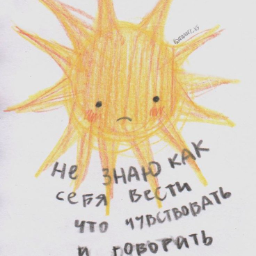 не знаю как
себя вести
что чувствовать
и говорить